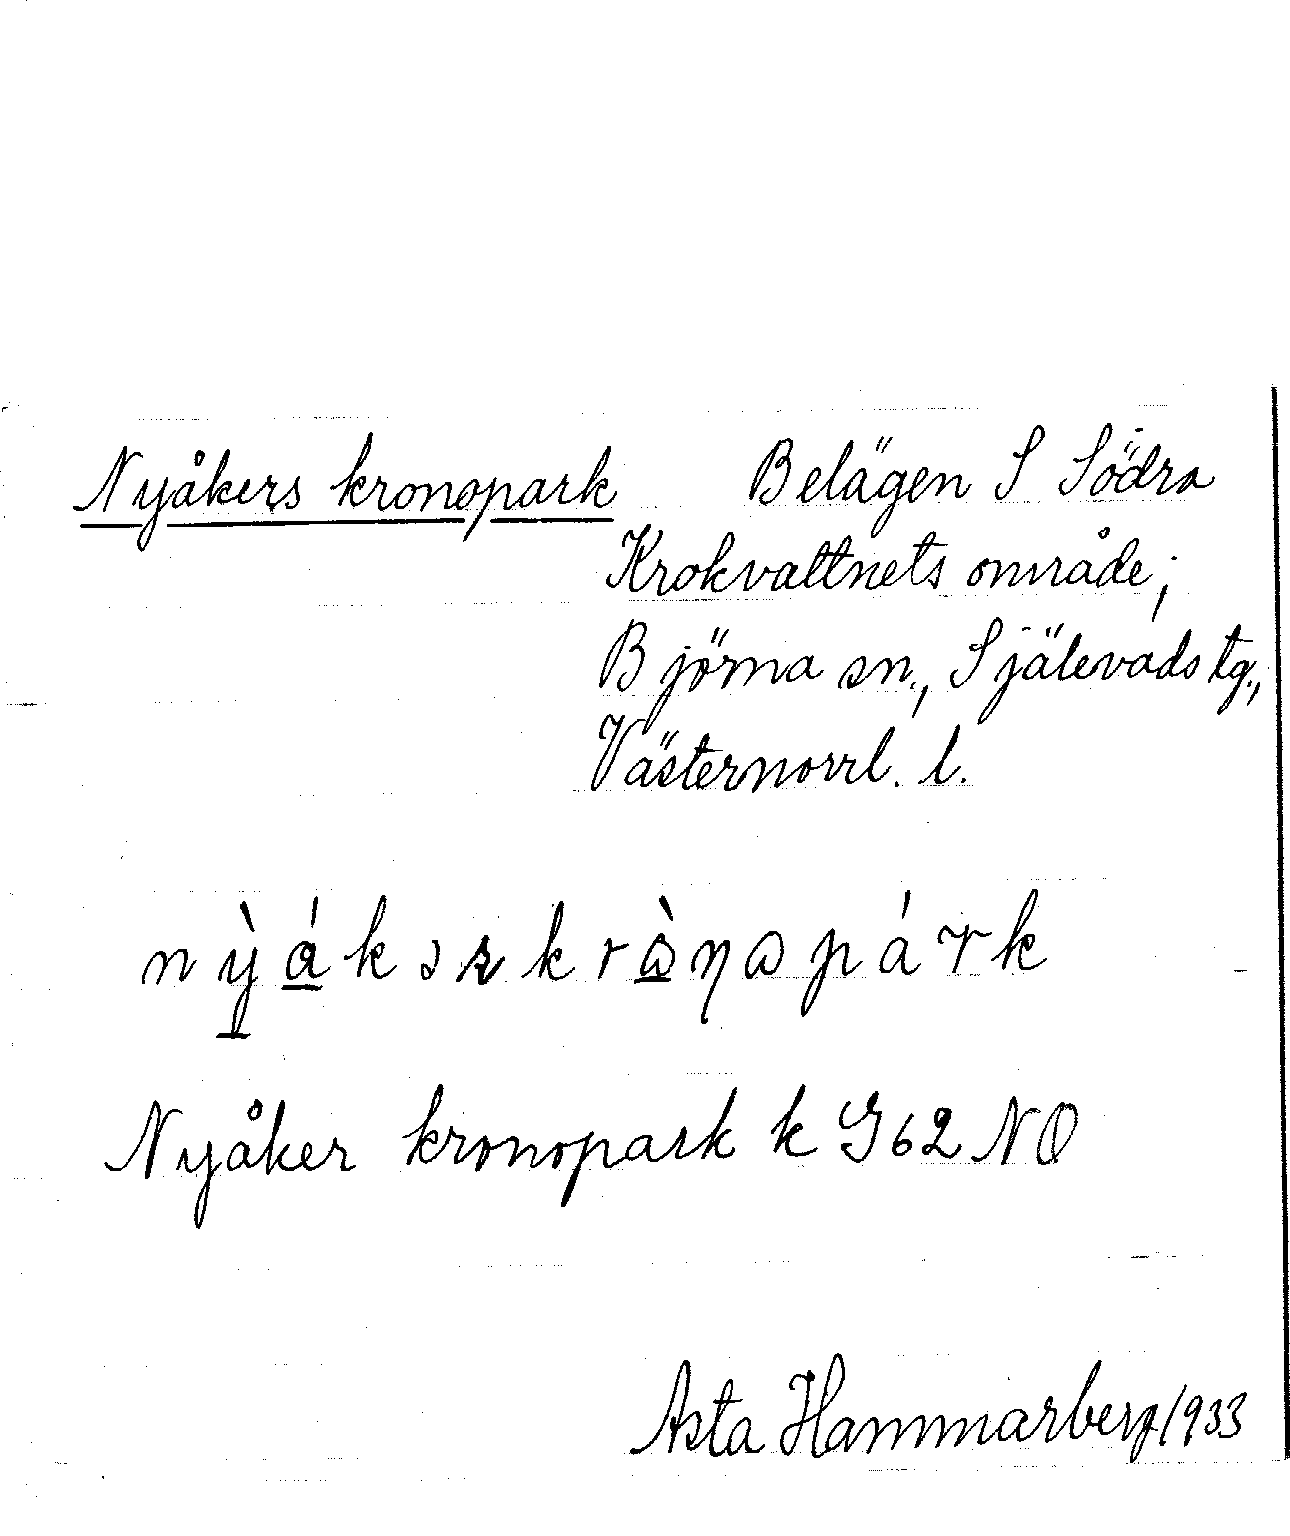 Nyåkers kronopark Belägen S Södra
Krokvattnets område;
Björna sn., Själevads tg.,
Västernorrl. l.
Nyåker kronopark k G62 NO
Asta Hammarberg 1933